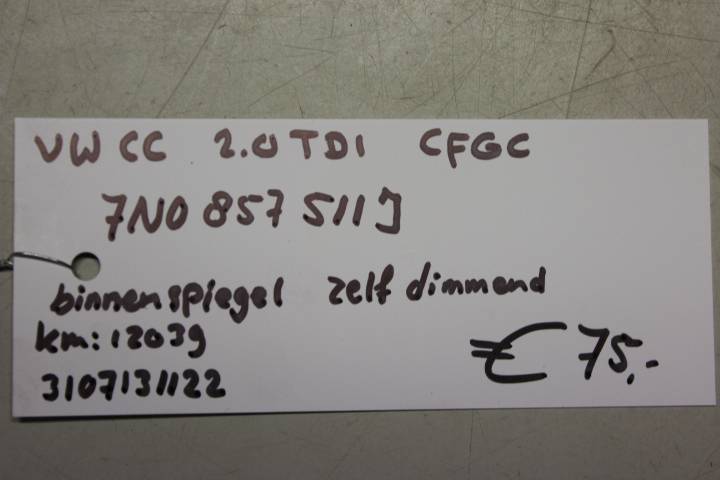 VW CC 2.0 TDI CFGC
7N0 857 511 J
binnenspiegel zelf dimmend
km: 12039
3107131122
€ 75,-